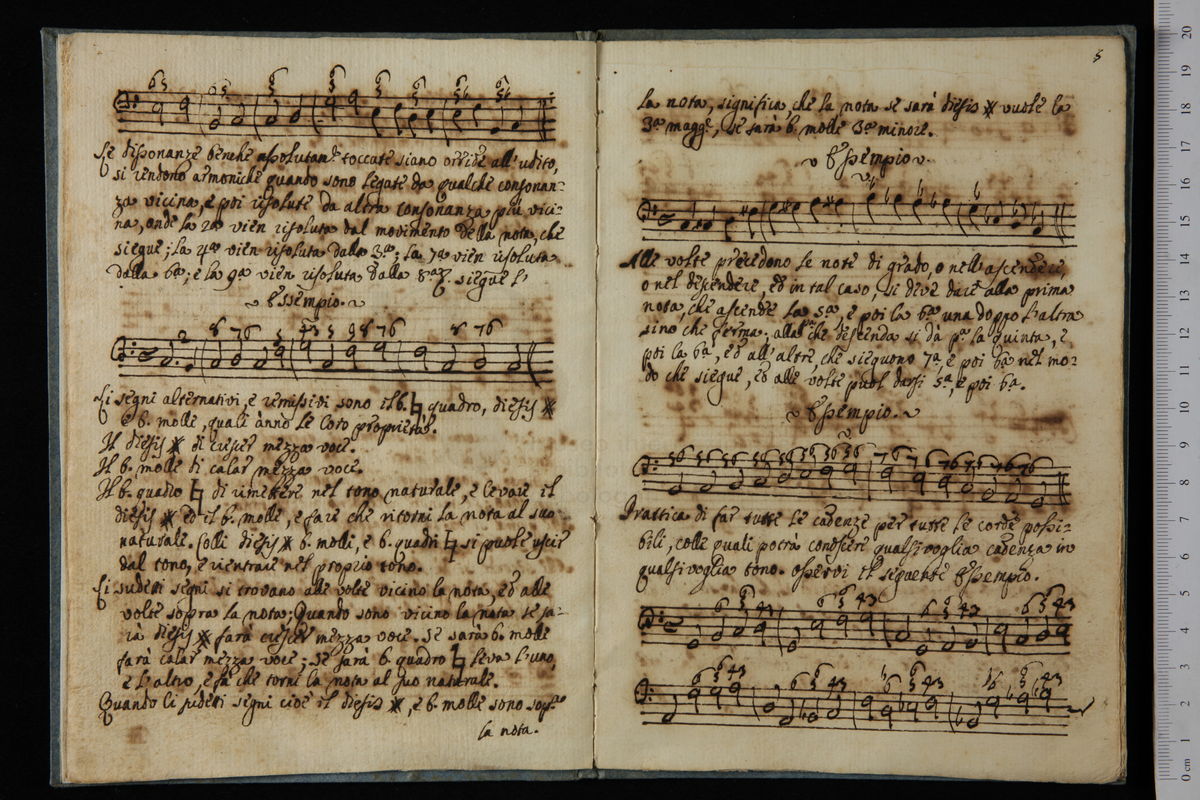 Le dissonanze benche assolutamᵉ. toccate siano orride all'udito,
si rendono armoniche quando sono legate da qualche consonan-
za vicina, e poi risolute da altra consonanza più vici-
na, onde la 2ᵃ vien risoluta dal movimento della nota, che
siegue; la 4ᵃ vien risoluta dalla 3ᵃ; la 7ᵃ vien risoluta
dalla 6ᵃ; e la 9ᵃ vien risoluta dalla 8ᵃ. siegue l'
Essempio.
Li segni alternativi, e remissivi sono il b. ♮ quadro, diesis ⋇
e b. molle, quali ànno le loro proprietà.
Il diesis ⋇ di crescer mezza voce.
Il b. molle di calar mezza voce.
Il b. quadro ♮ di rimettere nel tono naturale, e levare il
diesis ⋇ ed il b. molle, e fare che ritorni la nota al suo
naturale. Colli diesis ⋇ b. molli, e b. quadri ♮ si puole uscir
dal tono, e rientrare nel proprio tono.
Li sudetti segni si trovano alle volte vicino la nota, ed alle
volte sopra la nota; Quando sono vicino la nota se sa-
rà diesis ⋇ farà crescer mezza voce. Se sarà b. molle
farà calar mezza voce; se sarà b. quadro ♮ leva l'uno,
e l'altro, e fà che torni la nota al suo naturale.
Quando li sudetti segni cioè il diesis ⋇, e b. molle sono sopᵃ
la nota.
5
la nota, significa, che la nota se sarà diesis ⋇ vuole la
3ᵃ maggᵉ., se sarà b. molle 3ᵃ minore.
Essempio.
Alle volte precedono le note di grado, o nell'ascendere,
o nel descendere, ed in tal caso, si deve dare alla prima
nota, che ascende la 5ᵃ, e poi la 6ᵃ una doppo l'altra
sino che ferma. alla pᵃ che descenda si dà pᵃ la quinta, e
poi la 6ᵃ, ed all'altre, che sieguono 7ᵃ, e poi 6ᵃ nel mo-
do che siegue, ed alle volte puol darsi 5ᵃ, e poi 6ᵃ.
Essempio.
Prattica di far tutte le cadenze per tutte le corde possi-
bili, colle quali potrà conoscere qualsivoglia cadenza in
qualsivoglia tono. Osservi il seguente Essempio.